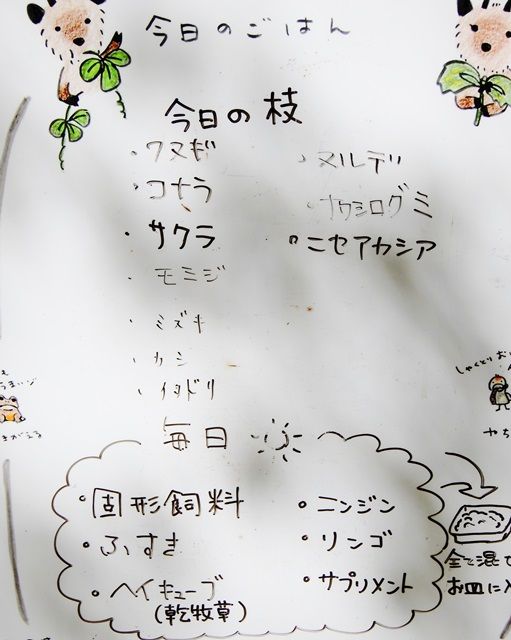 今日のごはん
今日の枝
・クヌギ
・コナラ
・サクラ
・モミジ
・ミズキ
・カシ
・イタドリ
・ヌルデ
・ナワシログミ
・ニセアカシア
毎日
・固形飼料
・ふすま
・ヘイキューブ
(乾牧草)
・ニンジン
・リンゴ
・サプリメント
全て混て
お皿に入